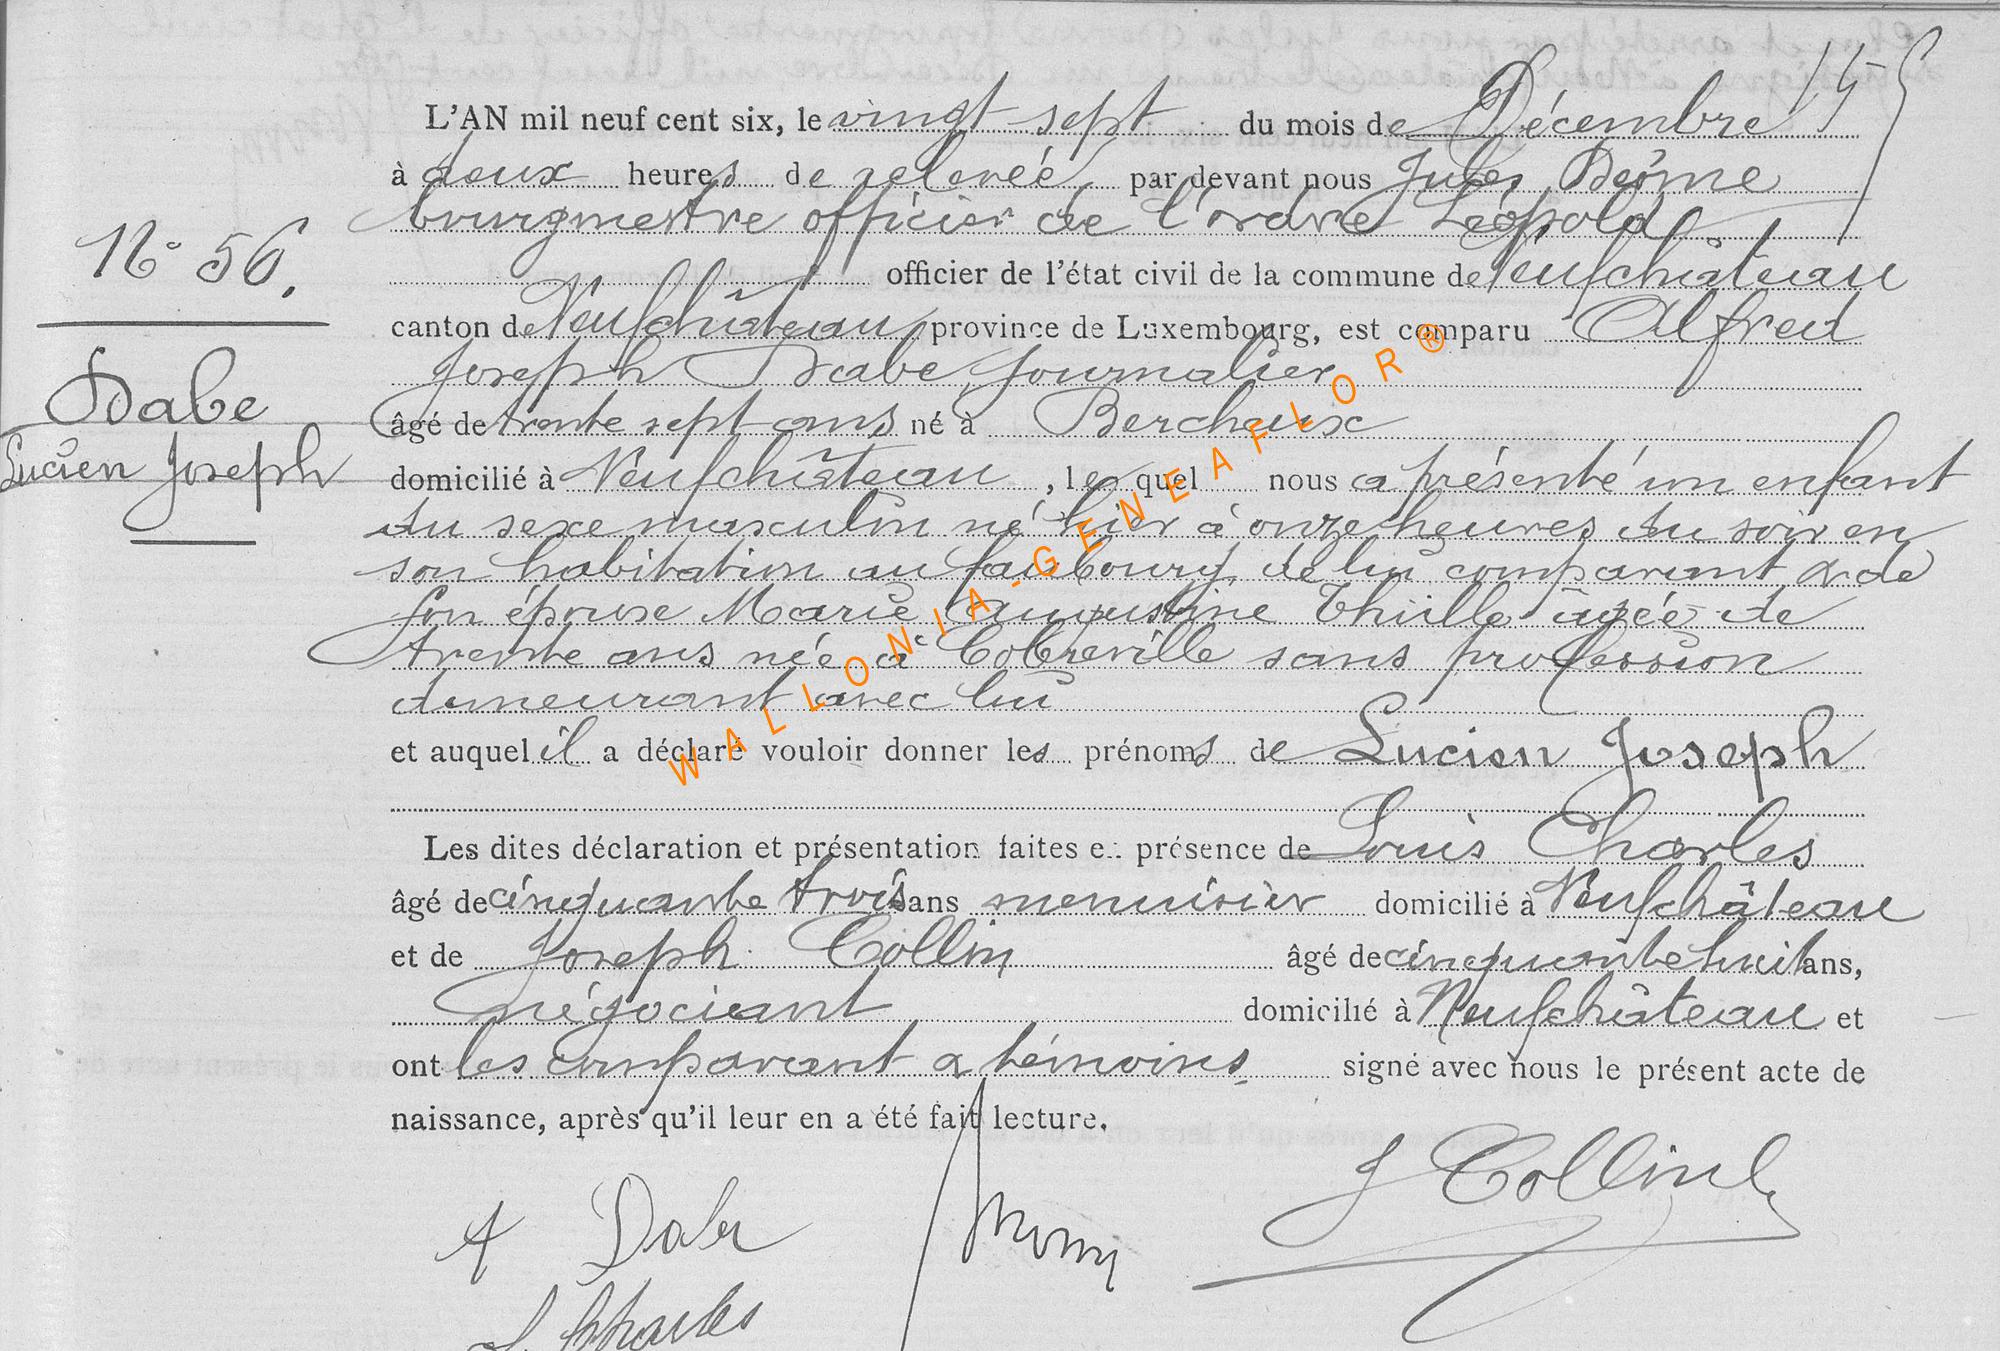 L'AN mil neuf cent six, le vingt sept du mois de Décembre
à deux heures de relevée, par devant nous Jules
bourgmestre officier de l'ordre Léopold
N° 56.
officier de l'état civil de la commune de Neufchâteau
canton de Neufchâteau, province de Luxembourg, est comparu Alfred
Joseph Dabe journalier
Dabe
âgé de trente sept ans né à Bercheux
Lucien Joseph
domicilié à Neufchâteau, lequel nous a présenté un enfant
du sexe masculin né hier à onze heures du soir en
son habitation au faubourg de lui comparant & de
son épouse Marie Augustine Thille âgée de
trente ans née à Cobreville sans profession
demeurant avec lui
et auquel il a déclaré vouloir donner les prénoms de Lucien Joseph
Les dites déclaration et présentation faites en présence de Louis Charles
âgé de cinquante trois ans menuisier domicilié à Neufchâteau
et de Joseph Collin âgé de cinquante huit ans,
négociant domicilié à Neufchâteau et
ont les comparant & témoins signé avec nous le présent acte de
naissance, après qu'il leur en a été fait lecture.
J Collin
A Dabe
L. Charles
WALLONIA-GENEAFLOR®